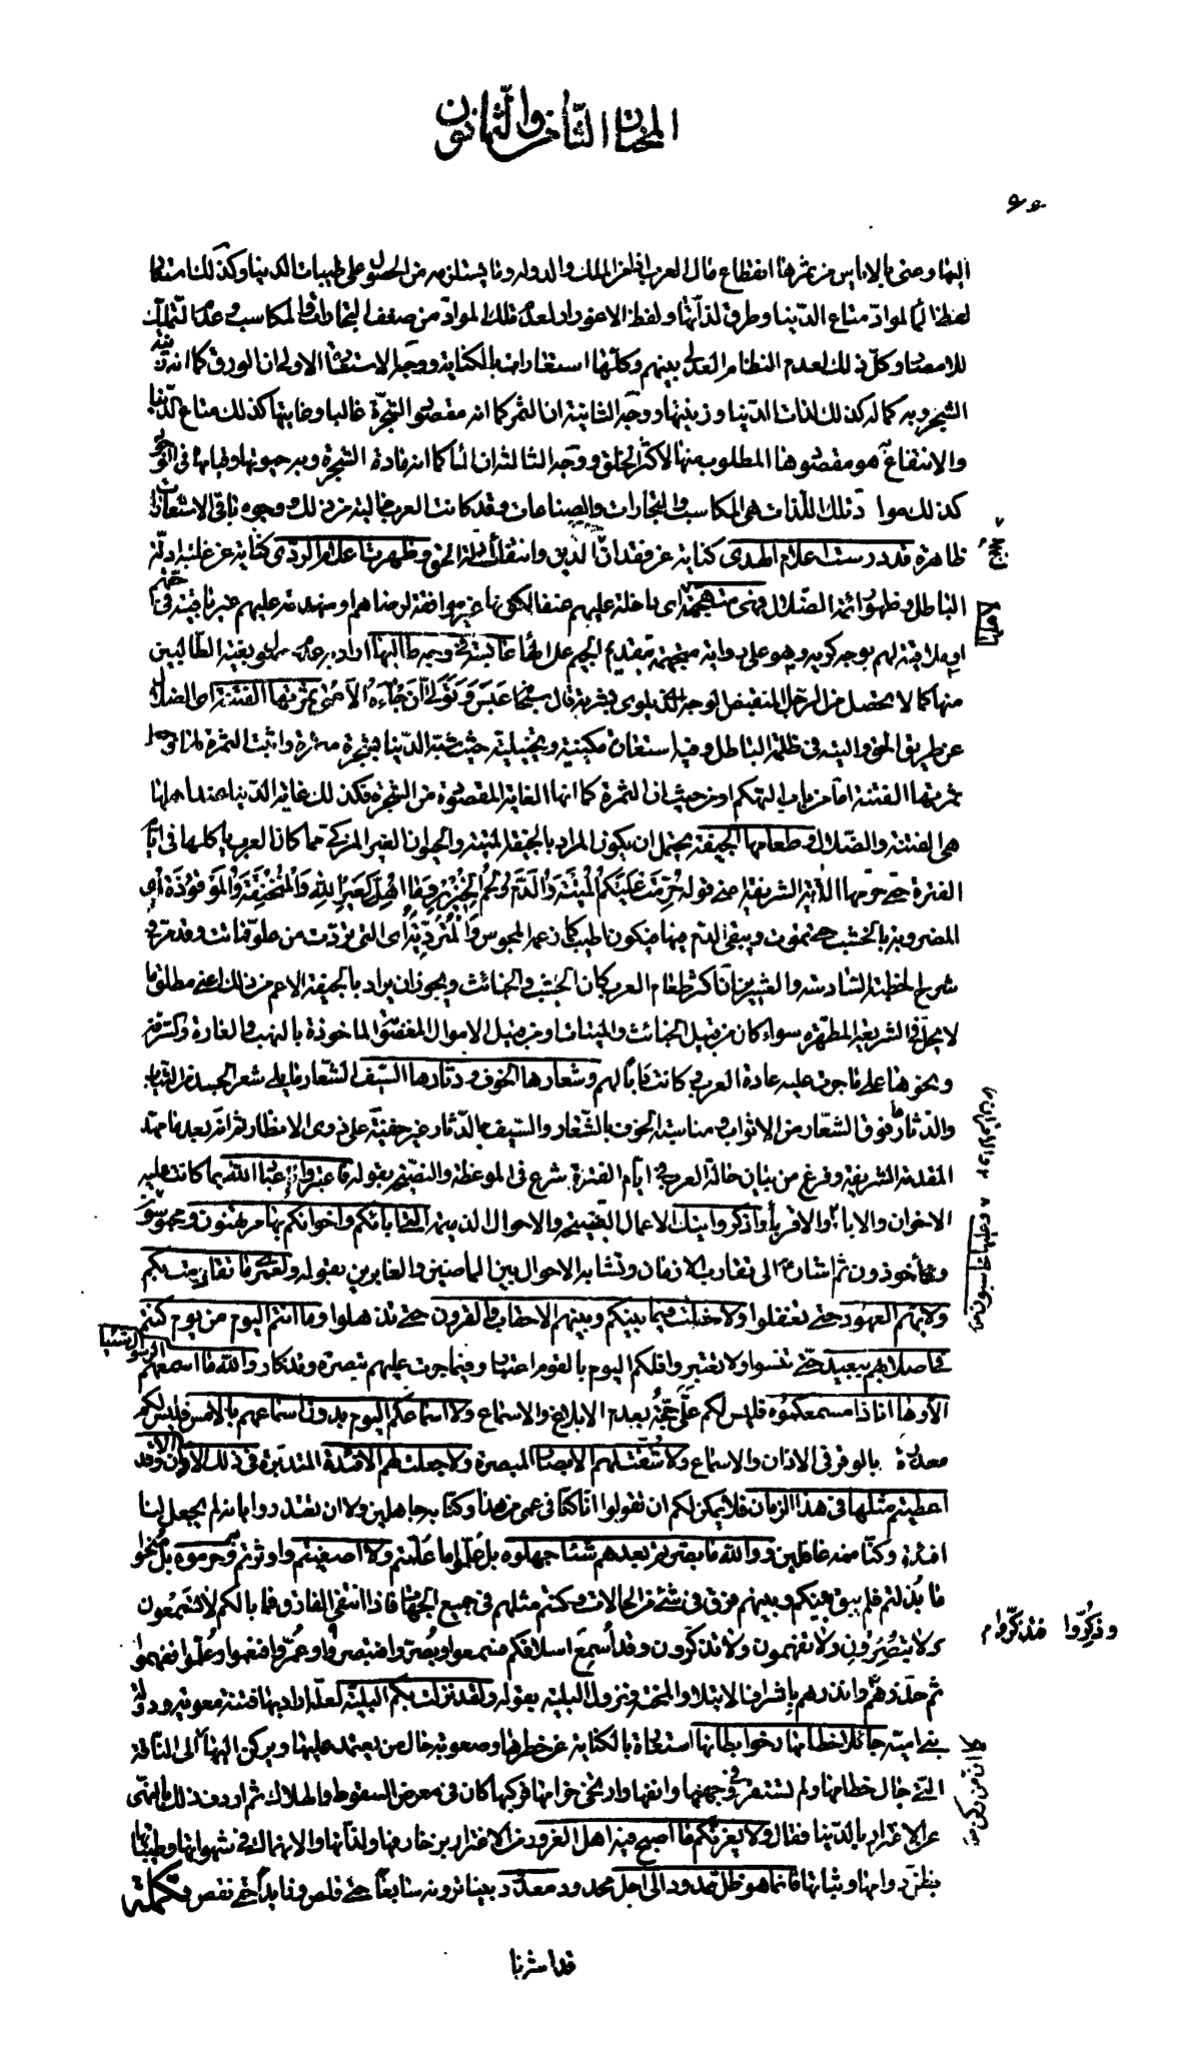 المختار الثامن والثمانون
اليها وعنى بالاياس من ثمرها انقطاع مال العرب اذا من الملك والدولة وما يستلزمه من الحصول على طيبات الدنيا وكذلك
لفظ الماء لمواد متاع الدنيا وطرق لذاتها ولفظ الاغورار لعدم تلك المواد من ضعف التجارات والمكاسب وعدم التملك
للامصار وكل ذلك لعدم النظام العدلي بينهم وكلها استعارات بالكناية ووجه الاستعارة الاولى ان الورق كما انه زينة
الشجر وبه كماله كذلك لذات الدنيا وزينتها ووجه الثانية ان الثمر كما انه مقصود الشجرة غالبا وغايتها كذلك متاع الدنيا
والانتفاع به هو مقصودها المطلوب منها لاكثر الخلق ووجه الثالثة ان الماء كما انه مادة الشجرة وبه حيوتها وقيامها في الوجود
كذلك مواد تلك اللذات هي المكاسب والتجارات والصناعات وقد كانت العرب خالية من ذلك ووجوه باقي الاستعارات
ظاهرة قد درست اعلام الهدى كناية عن فقدان الدين وانتفاء ادلة الحق وظهرت اعلام الردى كناية عن غلبة ادلة
الباطل وظهور ائمة الضلال فهي متهجمة اى داخلة عليهم عنفا لكونها غير موافقة لرضاهم او منهدمة عليهم غير باقية في
او ملاقية لهم بوجه كريه وهو على رواية متجهمة بتقديم الجيم على الهاء عابسة في وجه طالبها اراد به عدم حصول بغية الطالبين
منها كما لا يحصل من الرجل المنقبض الوجه الذي يلوى بشرته قال سبحانه عَبَسَ وَتَوَلّى أَنْ جاءَهُ الْأَعْمى ثمرتها الفتنة اى الضلال
عن طريق الحق والتيه في ظلمة الباطل وفيه استعارة مكنية وتخييلية حيث شبه الدنيا بشجرة مثمرة واثبت الثمرة لها
ثمرتها الفتنة اما من باب التهكم او من حيث ان الثمرة كما انها الغاية المقصودة من الشجرة فكذلك غاية الدنيا عند اهلها
هي الفتنة والضلال وطعامها الجيفة يحتمل ان يكون المراد بالجيفة الميتة والحيوان الغير المزكى مما كان العرب ياكلها في ايام
الفترة حتى حرمها الآية الشريفة اعنى قوله حُرِّمَتْ عَلَيْكُمُ الْمَيْتَةُ وَالدَّمُ وَلَحْمُ الْخِنْزيرِ وَما أُهِلَّ لِغَيْرِ اللهِ وَالْمُنْخَنِقَةُ وَالْمَوْقُوذَةُ اى
المضروبة بالخشب حتى تموت ويبقى الدم فيها فيكون اطيب كما زعمه المجوس وَالْمُتَرَدِّيَةُ اى التي تردت من علو فماتت وقد مر في
شرح الخطبة السادسة والعشرين ان اكثر طعام العرب كان الخبيث والخبائث ويجوز ان يراد بالجيفة الاعم من ذلك اعنى مطلق ما
لا يحل في الشريعة المطهرة سواء كان من قبيل الخبائث والميتات او من قبيل الاموال المغصوبة الماخوذة بالنهب والغارة والسرقة
ونحوها على ما جرت عليه عادة العرب وكانت دأبا لهم وشعارها الخوف ودثارها السيف الشعار ما يلي شعر الجسد من الثياب
والدثار ما فوق الشعار من الاثواب ومناسبة الخوف بالشعار والسيف بالدثار غير خفية على ذوى الانظار ثم انه بعد ما مهد
المقدمة الشريفة وفرغ من بيان حالة العرب في ايام الفترة شرع في الموعظة والنصيحة بقوله فاعتبروا عباد الله بما كانت عليه
الاخوان والاباء والاقرباء واذكروا تيك الاعمال القبيحة والاحوال الذميمة التي اباؤكم واخوانكم بها مرتهنون ومحبوسون
وعليها محاسبون
ومأخوذون ثم اشار الى تقارب الازمان وتشابه الاحوال بين الماضين والغابرين بقوله ولعمرى ما تقادمت بكم
ولا بهم العهود حتى تغفلوا ولا خلت فيما بينكم وبينهم الاحقاب والقرون حتى تذهلوا وما انتم اليوم من يوم كنتم
في اصلابهم ببعيد حتى تنسوا ولا تعتبروا فلكم اليوم بالقوم اعتبار وفيما جرت عليهم تبصرة وتذكار والله ما اسمعهم الرسول شيئا
الا وها انا ذا مسمعكموه فليس لكم علي حجة بعدم الابلاغ والاسماع ولا اسماعكم اليوم بدون اسماعهم بالامس فليس لكم
معذرة بالوقر في الاذان والاسماع ولا شقت لهم الابصار المبصرة ولا جعلت لهم الافئدة المتدبرة في ذلك الاوان الا وقد
اعطيتم مثلها في هذا الزمان فلا يمكن لكم ان تقولوا انا كنا في عمى من هذا وكنا به جاهلين ولا ان تعتذروا بانه لم يجعل لنا
افئدة وكنا منه غافلين ووالله ما بصرتم بعدهم شيئا جهلوه بل علموا ما علمتم ولا اصفيتم واوثرتم به وحرموه بل منحوا
ما بذلتم فلم يبق بينكم وبينهم فرق في شئ من الحالات وكنتم مثلهم في جميع الجهات فاذا انتفى الفارق فما بالكم لا تسمعون
ولا تبصرون ولا تفهمون ولا تذكرون وقد أسمع اسلافكم فسمعوا وبُصّروا فتبصروا وعُمّروا ففهموا وعُلّموا ففهموا
وذُكّروا فتذكروا
ثم حذرهم وانذرهم باشراف الابتلاء والمحن ونزول البلية بقوله ولقد نزلت بكم البلية لعله اراد بها فتنة معوية ودولة
بني امية جائلا خطامها رخوا بطانها استعارة بالكناية عن خطرها وصعوبة حال من يعتمد عليها ويركن اليها
التي جال خطامها ولم تستقر في وجهها وانفها وارتخى حزامها فركبها كان في معرض السقوط والهلاك ثم اردف ذلك بالنهى
عن الاغترار بالدنيا فقال ولا يغرنكم ما اصبح فيه اهل الغرور من الاغترار بزخارفها ولذاتها والانهماك في شهواتها وطيباتها
بظن دوامها وثباتها فانما هو ظل ممدود الى اجل محدود معدود بينا ترونه سابغا حتى قلص وزايدا حتى نقص تكملة
قد اشرنا